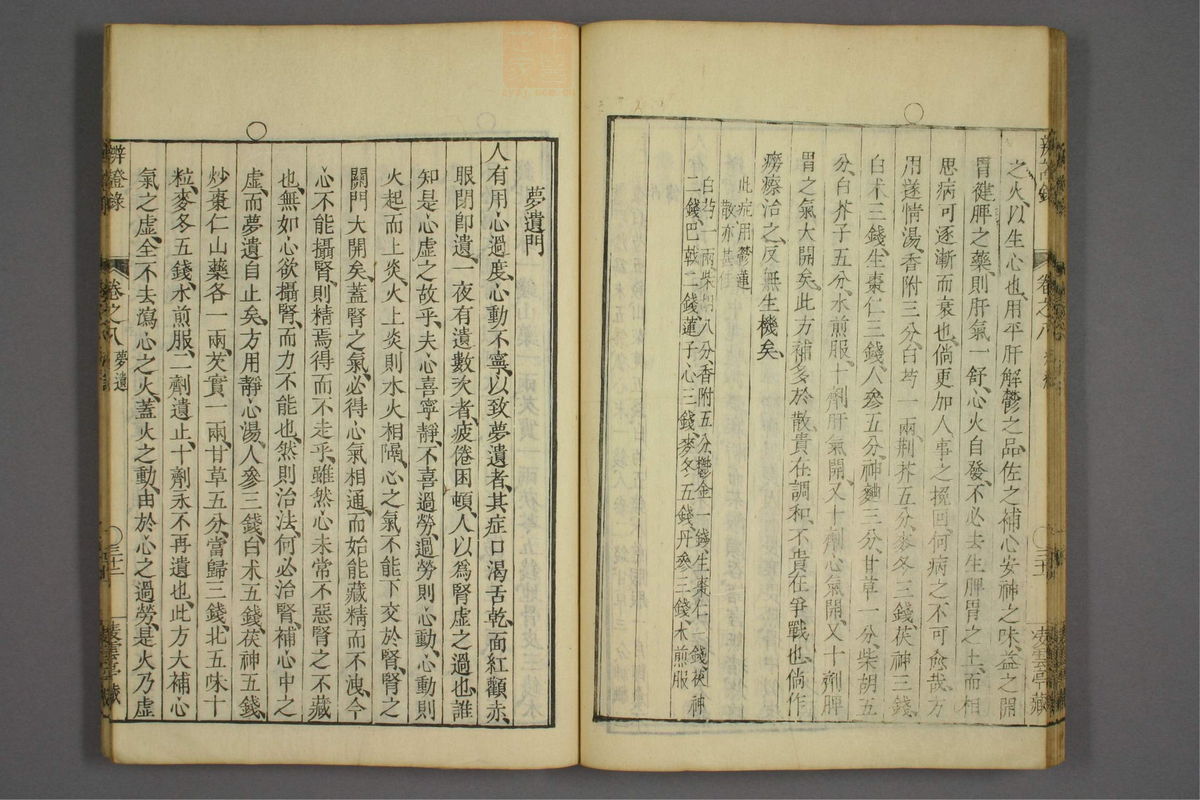 之火、以生心也、用平肝解鬱之品、佐之補心安神之味、益之開
胃健脾之藥、則肝氣一舒、心火自發、不必去生脾胃之土、而相
思病可逐漸而衰也、倘更加人事之挽回、何病之不可愈哉、方
用遂情湯、香附三分、白芍一兩、荆芥五分、麥冬三錢、茯神三錢、
白朮三錢、生棗仁三錢、人參五分、神麯三分、甘草一分、柴胡五
分、白芥子五分、水煎服、十劑肝氣開、又十劑心氣開、又十劑脾
胃之氣大開矣、此方補多於散、貴在調和、不貴在爭戰也、倘作
癆瘵治之、反無生機矣、
此症用鬱蓮
散亦甚佳
白芍一兩、柴胡八分、香附五分、鬱金一錢、生棗仁一錢、茯神
二錢、巴戟二錢、蓮子心三錢、麥冬五錢、丹參三錢、水煎服
辨證錄
卷之八
三十一
夢遺門
人有用心過度、心動不寧、以致夢遺者、其症口渴舌乾、面紅顴赤、
眼閉卽遺、一夜有遺數次者、疲倦困頓、人以爲腎虛之過也、誰
知是心虛之故乎、夫心喜寧靜、不喜過勞、過勞則心動、心動則
火起而上炎、火上炎則水火相隔、心之氣不能下交於腎、腎之
關門大開矣、蓋腎之氣、必得心氣相通、而始能藏精而不洩、今
心不能攝腎、則精焉得而不走乎、雖然心未常不惡腎之不藏
也、無如心欲攝腎、而力不能也、然則治法、何必治腎、補心中之
虛、而夢遺自止矣、方用靜心湯、人參三錢、白朮五錢、茯神五錢、
炒棗仁山藥各一兩、芡實一兩、甘草五分、當歸三錢、北五味十
粒、麥冬五錢、水煎服、二劑遺止、十劑永不再遺也、此方大補心
氣之虛、全不去瀉心之火、蓋火之動、由於心之過勞、是火乃虛
辨證錄
卷之八 夢遺
三十二